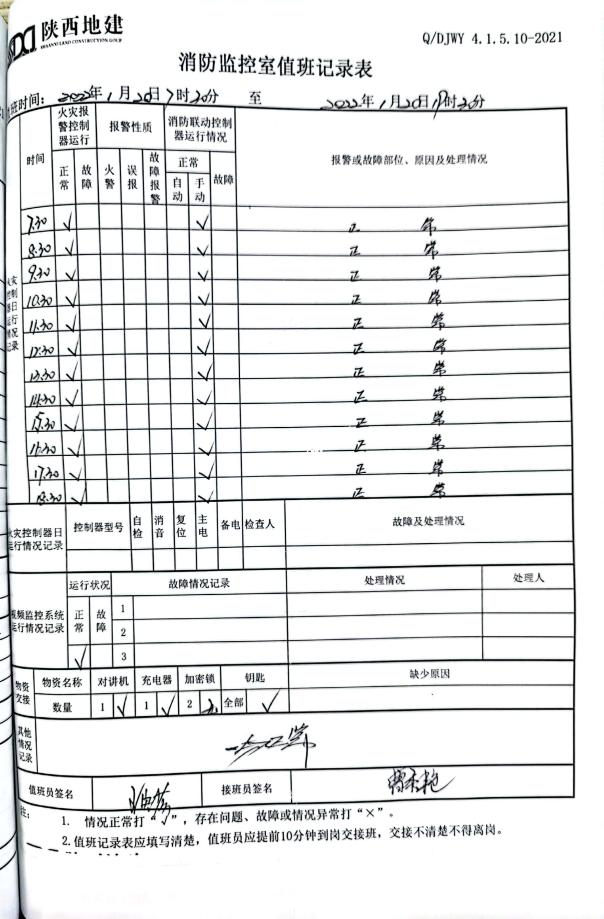 陕西地建
SHAANXI LAND CONSTRUCTION GROUP
Q/DJWY 4.1.5.10-2021
消防监控室值班记录表
班时间: 2022年1月20日7时30分 至 2022年1月20日19时30分
时间 火灾报警控制器运行 报警性质 消防联动控制器运行情况 报警或故障部位、原因及处理情况
正常 故障 火警 误报 故障报警 正常 故障
自动 手动
火灾控制器日运行情况记录
7:30 ✓ ✓ 正常
8:30 ✓ ✓ 正常
9:30 ✓ ✓ 正常
10:30 ✓ ✓ 正常
11:30 ✓ ✓ 正常
12:30 ✓ ✓ 正常
13:30 ✓ ✓ 正常
14:30 ✓ ✓ 正常
15:30 ✓ ✓ 正常
16:30 ✓ ✓ 正常
17:30 ✓ ✓ 正常
18:30 ✓ ✓ 正常
火灾控制器日运行情况记录 控制器型号 自检 消音 复位 主电 备电 检查人 故障及处理情况
视频监控系统运行情况记录 运行状况 故障情况记录 处理情况 处理人
正常 故障 1
2
✓ 3
物资交接 物资名称 对讲机 充电器 加密锁 钥匙 缺少原因
数量 1 ✓ 1 ✓ 2 全部 ✓
其他情况记录 一切正常
值班员签名 接班员签名
注: 1. 情况正常打“√”，存在问题、故障或情况异常打“×”。
2.值班记录表应填写清楚，值班员应提前10分钟到岗交接班，交接不清楚不得离岗。